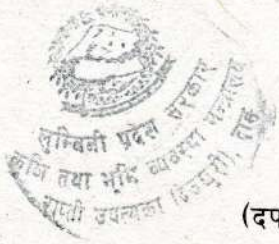 लुम्बिनी प्रदेश सरकार
कृषि तथा भूमि व्यवस्था मन्त्रालय
राप्ती उपत्यका (देउखुरी), दाङ
(दफ